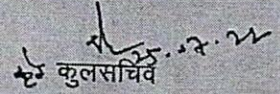 25.07.22
कृते कुलसचिव